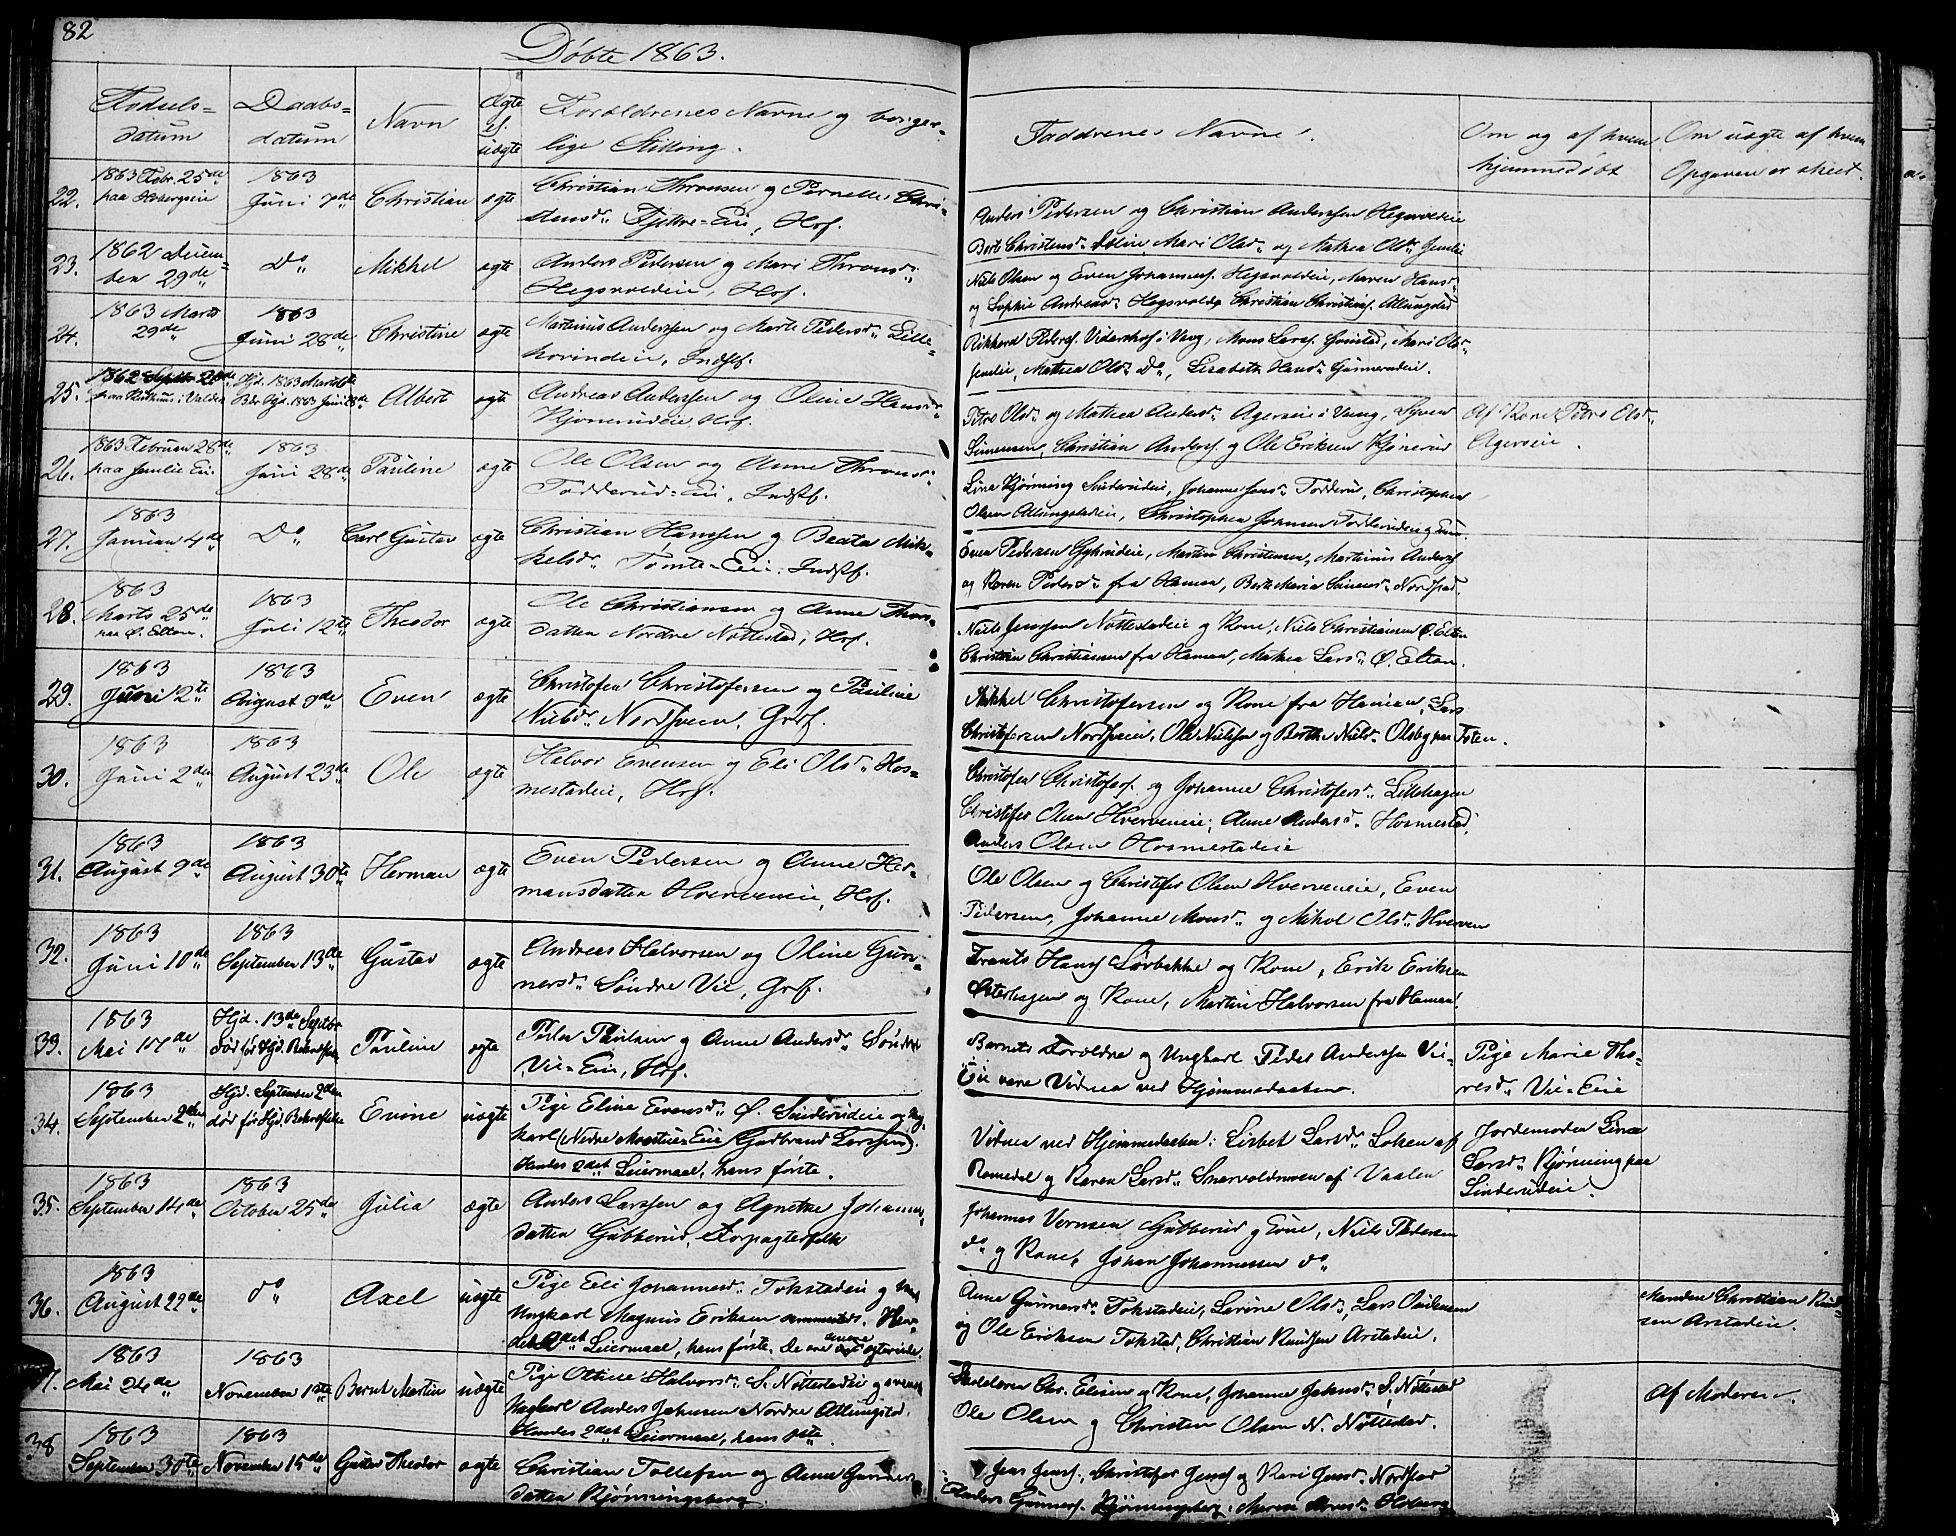 82
Döbte 1863.
Fødsels-
datum
Daabs-
datum
Navn
Ægte
el.
uægte
Forældrenes Navne og borger-
lige Stilling.
Faddrenes Navne.
Om og af hvem
hjemmedøbt
Om uægte af hvem
Opgaven er skeet.
22.
1863 Febr. 25de
1863
Juni 7de
Christian
ægte
Christian Thronsen og Pernelle Chri-
stensd. Eie, Hof.
Anders Pedersen og Christian Anderssen Hegsvoldeie
Mari Olsd. og Mathea Olsd. Jemlie
23.
1862 Decem-
ber 29de
Do
Mikkel
ægte
Anders Pedersen og Mari Thronsd.
Hegsvoldeie, Hof.
Niels Olsen og Even Johannesf. Hegsvoldeie, Maren Hansd.
og Sophie Andreasd. Hegsvold, Christian Christiansf. Atlungstad
24.
1863 Marts
29de
1863
Juni 28de
Christine
ægte
Martinus Anderssen og Marte Pedersd. Lille-
hovindeie, Indsf.
Rikhard Pedersf. i Vang, Mons Larsf. Gimstad, Mari Olsd.
Jemlie, Mathea Olsd. Do, Lisabeth Hansd. Gunnerudeie.
25.
1862 Septbr 20de
Hjd. 1863 Marts
1863 Juni 28de
Albert
ægte
Andreas Anderssen og Oline Hansd.
Kjonerudeie, Hof.
Petre Olsd. og Mathea Andersd. Agerseie i Vang, Syver
Simensen, Christian Andersf. og Ole Eriksen Kjonerud
Af Kone Petre Olsd.
Agerseie.
26.
1863 Februar 28de
paa Jemlie Eie.
1863
Juni 28de
Pauline
ægte
Ole Olsen og Anne Thronsd.
Todderud-Eie, Indsf.
Lina Kjønning Sinderudeie, Johanne Jensd. Todderud, Christopher
Olsen Atlungstadeie, Christopher Johnsen
27.
1863
Januar 4de
Do
Carl Gustav
ægte
Christian Hanssen og Beate Mik-
kelsd. Tomte-Eie, Indsf.
Even Pedersen, Martin Christensen, Martinus Andersf.
og Karen Pedersd. fra Hamar, Berte Maria Simensd. Nordsted.
28.
1863
Marts 25de
paa Ø. Elton.
1863
Juli 12te
Theodor
ægte
Ole Christiansen og Anne Thors-
datter Nordre Nøttestad, Hof.
Niels Jensen Nøttestadeie og Kone, Niels Christiansen Ø. Elton
Christian Christiansen fra Hamar, Mathea Larsd. Ø. Elton.
29.
1863
Juni 2te
1863
August 9de
Even
ægte
Christofer Christofersen og Pauline
Nielsd. Nordsveen, Grdf.
Mikkel Christofersen og Kone fra Hamar, Lars
Christofersen Nordsveen, Ole Nielsen og Berthe Nielsd. Olsby paa Toten.
30.
1863
Juni 2den
1863
August 23de
Ole
ægte
Halvor Evensen og Eli Olsd. Hos-
mestadeie, Hof.
Christofer Christofersf. og Johanne Christofersd. Lillehagen
Christofer Olsen Hverveneie, Anne Andersd. Hosmestad,
Anders Olsen Hosmestadeie
31.
1863
August 9de
1863
August 30te
Herman
ægte
Even Pedersen og Anne Her-
mansdatter Hverveneie, Hof.
Ole Olsen og Christofer Olsen Hverveneie, Even
Pedersen, Johanne Monsd. og Mikol Olsd. Hverven
32.
1863
Juni 10de
1863
September 13de
Gustav
ægte
Andreas Halvorsen og Oline Gun-
nersd. Søndre Vie, Grdf.
Frants Hansf. Lørbekke og Kone, Erik Eriksen
Østerhagen og Kone, Martin Halvorsen fra Hamar.
33.
1863
Mai 17de
Hjd. 13de Septbr
død før Hjd. Bekræftelse
Pauline
ægte
Peder Paulsen og Anne Andersd. Søndre
Vie-Eie, Hof.
Barnets Forældre og Ungkarl Peder Andersen Vie-
Eie vare Vidner ved Hjemmedaaben.
Pige Marie Tho-
resd. Vie-Eie
34.
1863
September 2den
Hjd. September 2den
død før Hjd. Bekræftelse
Evine
uægte
Pige Eline Evensd. Ø. Sinderudeie og Ung-
karl (Nedre Eie) Gudbrand Larssen.
Hendes 2det Leiermaal, hans første.
Vidner ved Hjemmedaaben: Lisbet Larsd. Løken af
Romedal og Karen Larsd. af Vaaler
Jordemoder Lina
Larsd. Kjønning paa
Sinderudeie.
35.
1863
September 14de
1863
October 25de
Julia
ægte
Anders Larssen og Agnethe Johannes-
datter Gubberud, Forpagterfolk
Johannes Gubberud og Kone, Niels Pedersen
do og Kone, Johan Johannessen do
36.
1863
August 22de
do
Axel
uægte
Pige Eli Johannesd. Tokstadeie og
Ungkarl Magnus Eriksen ammestds. Hen-
des 2det Leiermaal, hans første. De ere
Anne Gunnersd. Tokstadeie, Larine Olsd., Lars
og Ole Eriksen Tokstad, Christian Knudsen Arstadeie.
Manden Christian Knud-
sen Arstadeie.
37.
1863
Mai 24de
1863
November 1ste
Bernt Martin
uægte
Pige Oline Halvorsd. S. Nøttestadeie og
Ungkarl Anders Johnsen Nordre Atlungstad.
Hendes 2det Leiermaal, hans 1ste.
Chr. Elisen og Kone, Johanne Johnsd. S. Nøttestad
Ole Olsen og Christen Olsen N. Nøttestad.
Af Moderen.
38
1863
September 30te
1863
November 15de
Gustav Theodor
ægte
Christian Tollefsen og Anne Gunners-
datter Kjønningsberg
Jens Jensf., Christofer Jensf. og Kari Jensd. Nordstad
Anders Gunnersf. Kjønningsberg, Maren Olsberg